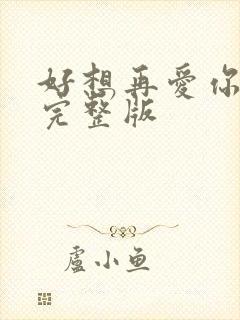 好想再愛你
完整版
盧小鱼